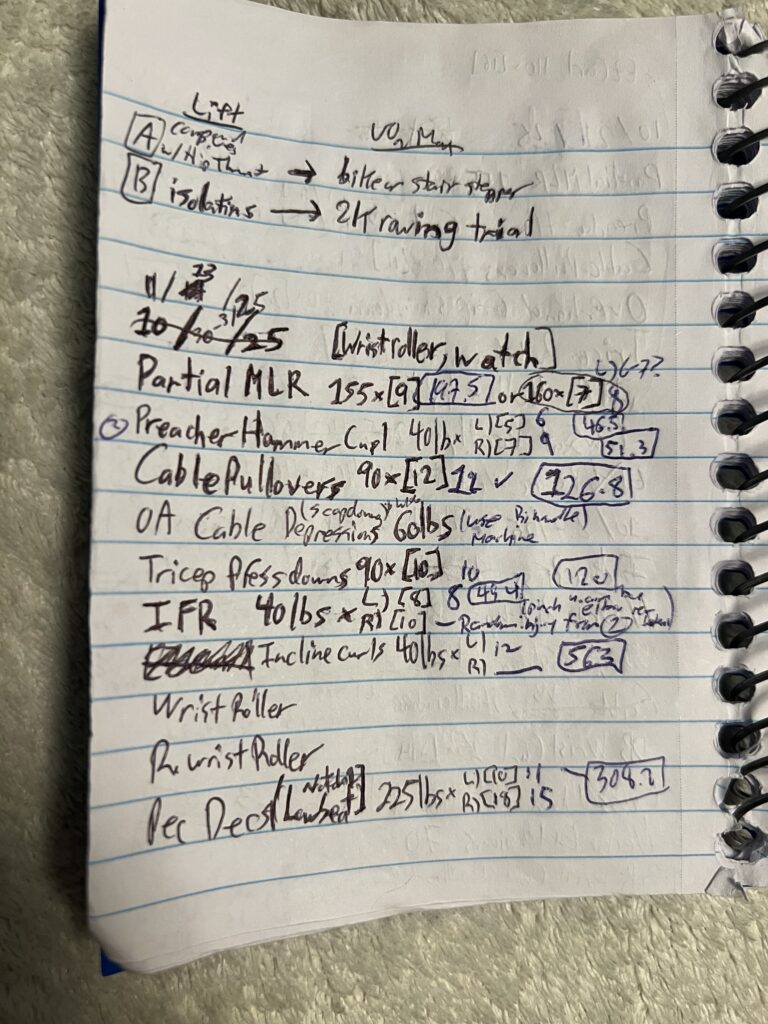 Lift VO2 Max
[A] compound w/ Hip Thrust → bike or stair stepper
[B] isolatins → 2K rowing trial
11/13/25
10/30 31/25 [Wrist roller, watch]
L)6-7?
Partial MLR 155×[9] 197.5 or 160×[7] 8
② Preacher Hammer Curl 40lb× L)[5] 6 46.5
R)[7] 9 51.3
Cable Pullovers 90×[12] 12 ✓ 126.8
OA Cable Depressions (scap down) 60lbs (use machine)
Tricep Pressdowns 90×[10] 10 120
IFR 40lbs × L)[8] 8
R)[10] – injury from ②
Incline curls 40lbs× L) 12 56.3
R) __
Wrist Roller
R. wrist Roller
Pec Decs [Low seat] 225lbs× L)[10] 11 – 308.2
R)[18] 15